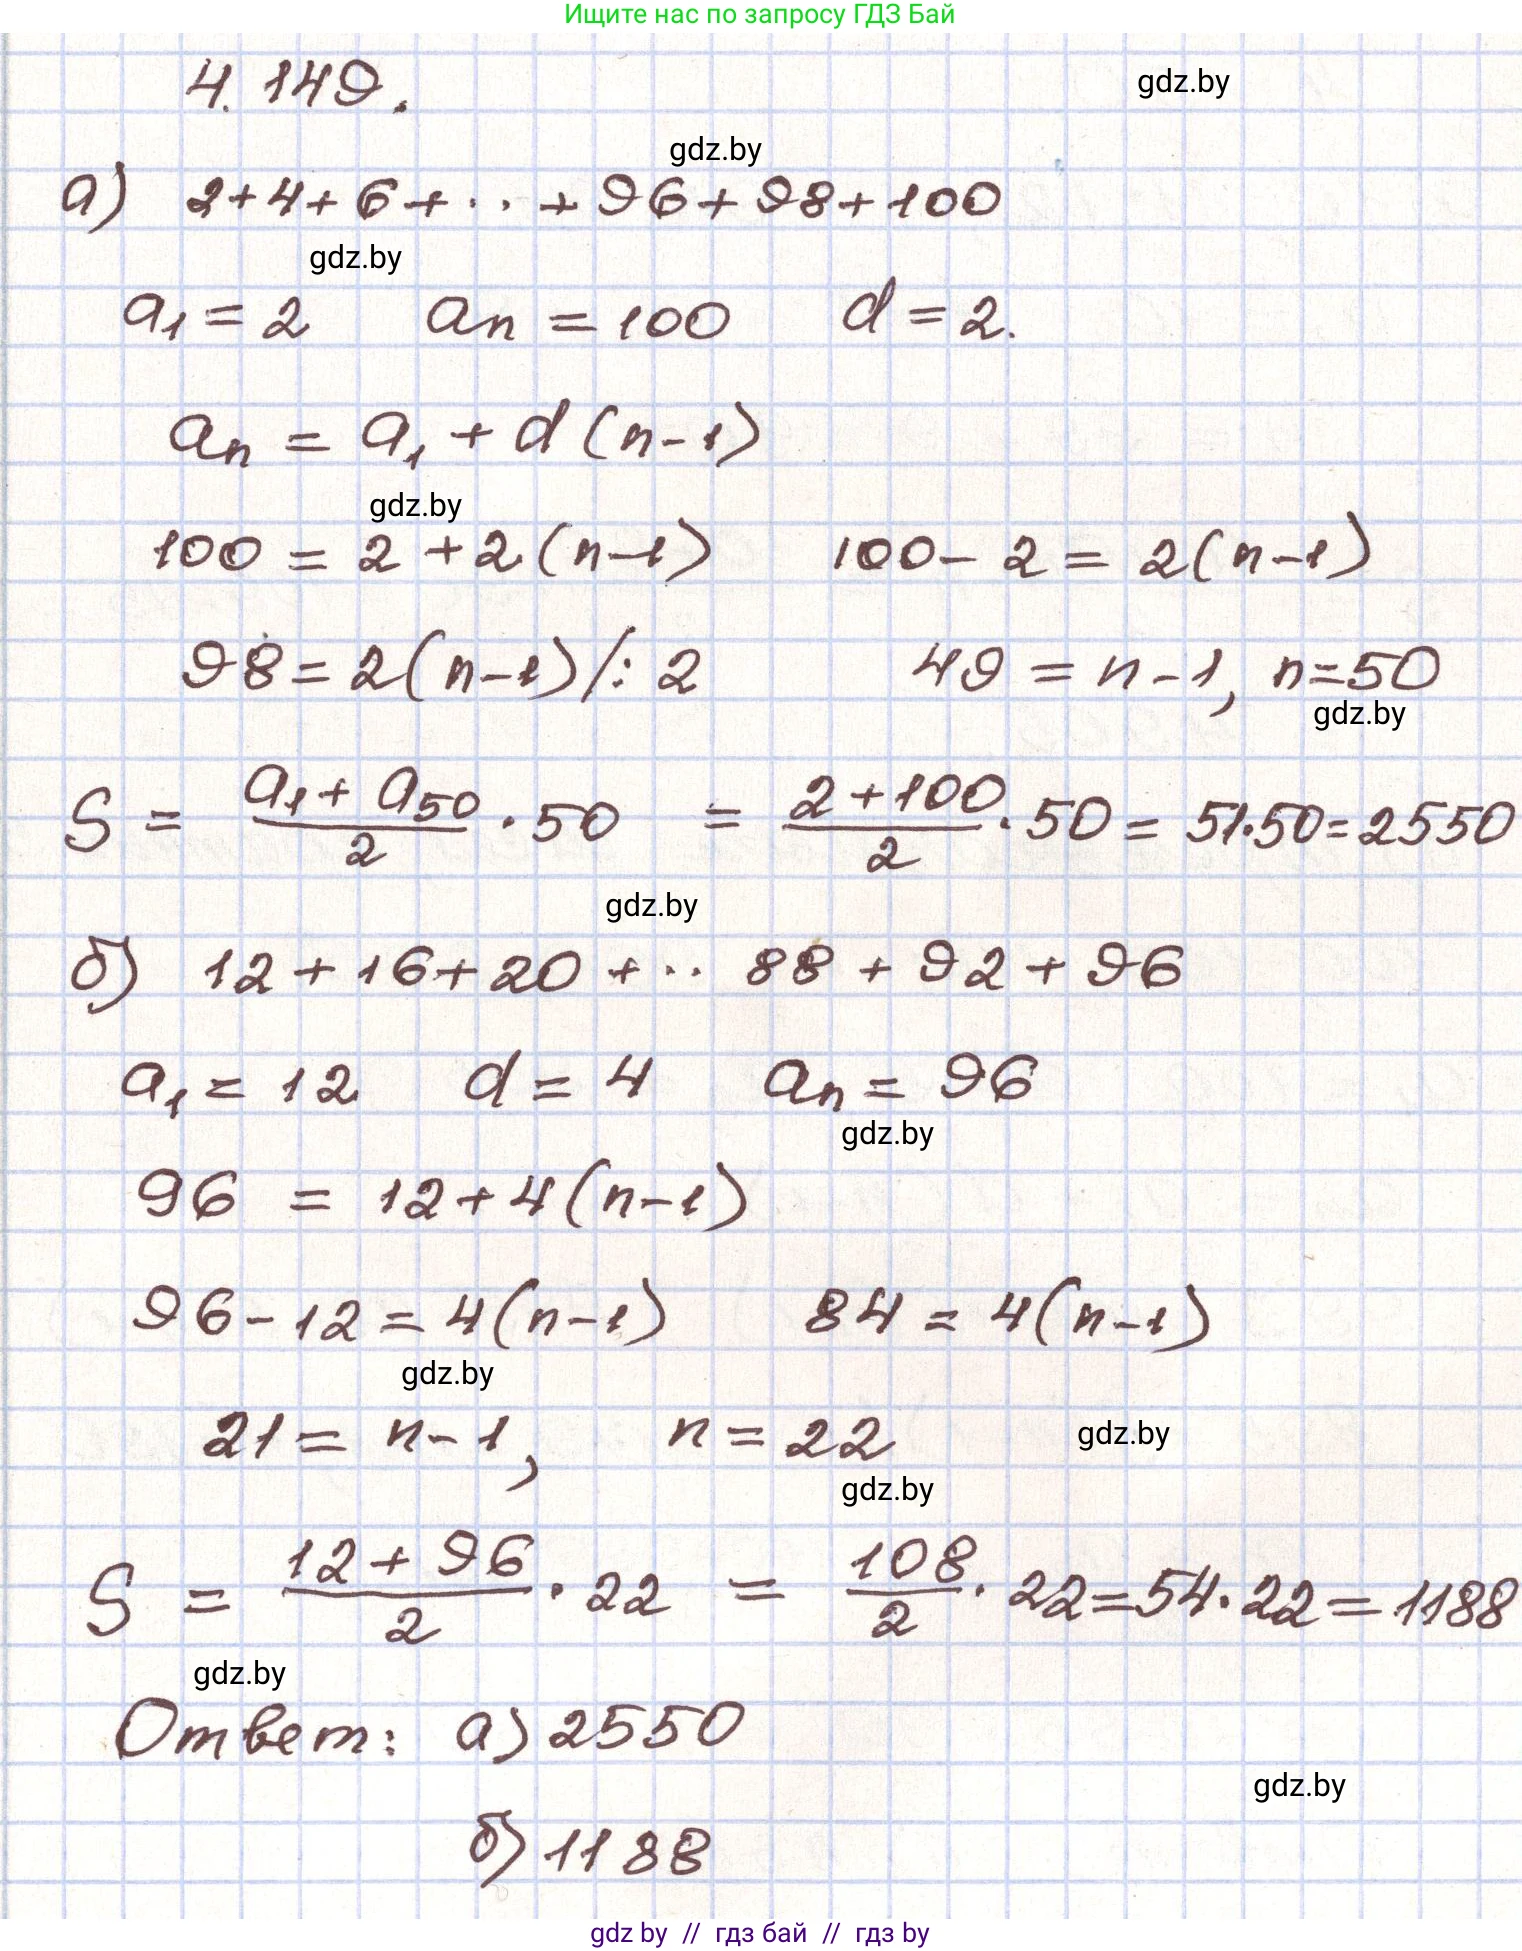 Ищите нас по запросу ГДЗ Бай
4.149.
gdz.by
gdz.by
а) 2+4+6+..+96+98+100
gdz.by
a₁=2 aₙ=100 d=2.
aₙ=a₁+d(n-1)
gdz.by
100=2+2(n-1) 100-2=2(n-1)
98=2(n-1)/:2 49=n-1, n=50
gdz.by
S = (a₁+a₅₀)/2 · 50 = (2+100)/2 · 50 = 51·50=2550
gdz.by
б) 12+16+20+.. 88+92+96
a₁=12 d=4 aₙ=96
gdz.by
96 = 12+4(n-1)
96-12=4(n-1) 84=4(n-1)
gdz.by
21=n-1, n=22
gdz.by
gdz.by
S = (12+96)/2 · 22 = 108/2 · 22=54·22=1188
gdz.by
Ответ: а) 2550
gdz.by
б) 1188
gdz by // гдз бай // гдз by